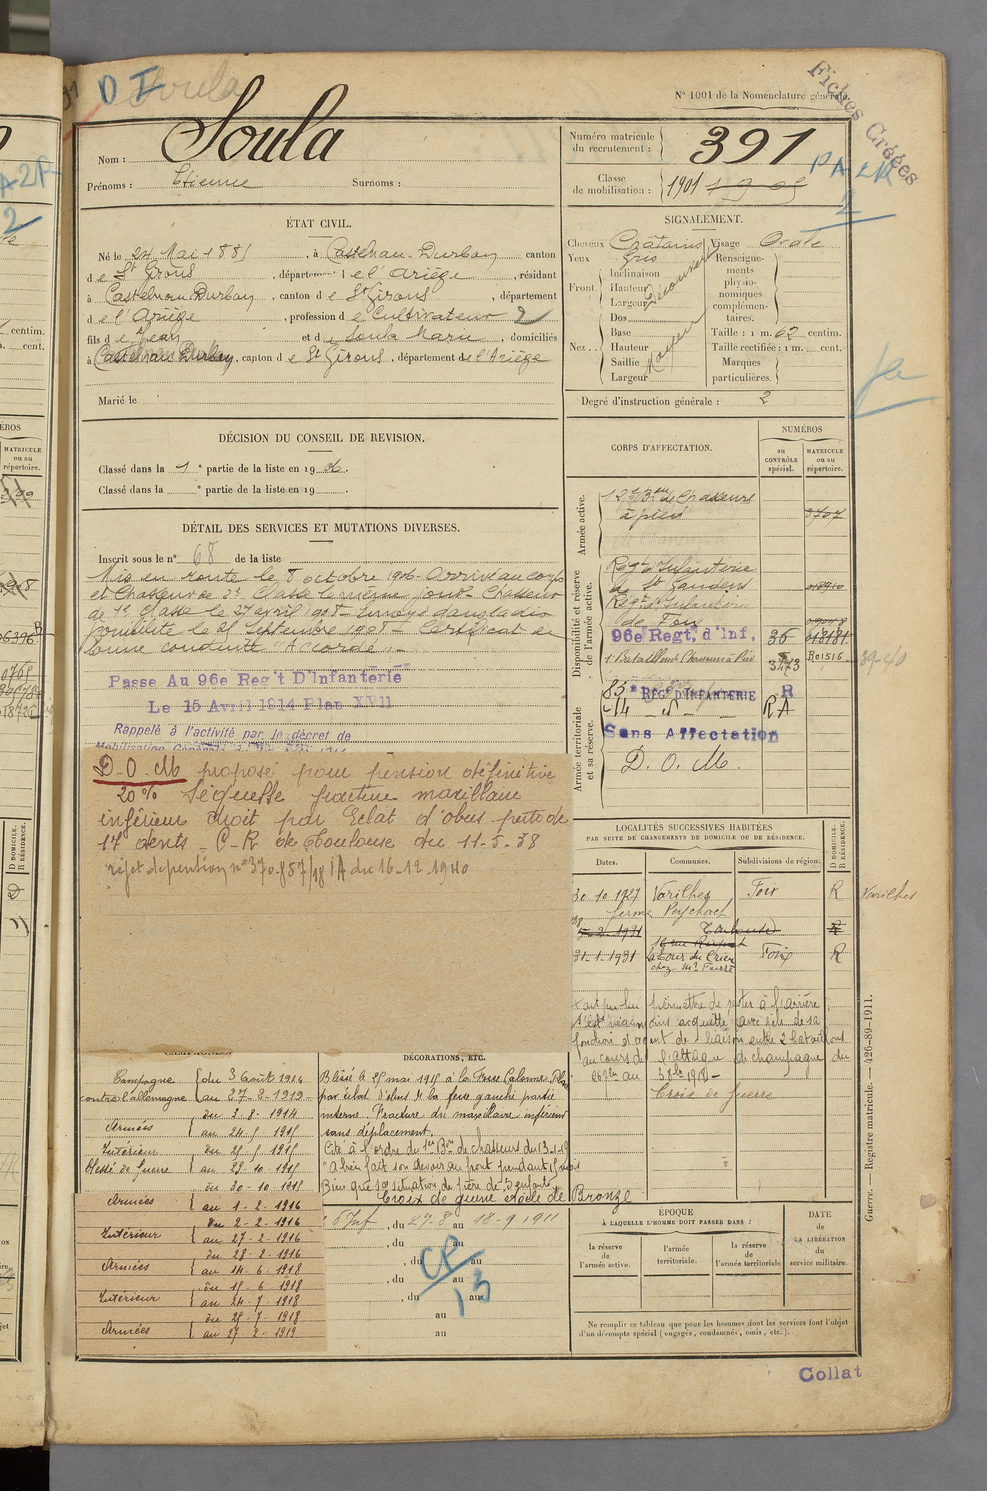 D I
Soula
N° 1001 de la Nomenclature générale.
Fiches Créées
Nom : Soula
Prénoms : Etienne Surnoms :
Numéro matricule du recrutement : 391
Classe de mobilisation : 1901
PA 2R
2
ÉTAT CIVIL.
Né le 24 Mai 1881, à Castelnau-Durban canton
de St Girons, département de l'Ariège, résidant
à Castelnau-Durban, canton de St Girons, département
de l'Ariège, profession de Cultivateur 2
fils de Jean et de Soula Marie, domiciliés
à Castelnau Durban, canton de St Girons, département de l'Ariège
Marié le
SIGNALEMENT.
Cheveux Châtains Visage Ovale
Yeux Gris
Front. Inclinaison Hauteur Largeur Découvert
Nez.. Dos Base Hauteur Saillie Largeur Moyen
Renseignements physionomiques complémentaires.
Taille : 1 m. 62 centim.
Taille rectifiée : 1 m. cent.
Marques particulières.
Degré d'instruction générale : 2
DÉCISION DU CONSEIL DE REVISION.
Classé dans la 1e partie de la liste en 1906.
Classé dans la e partie de la liste en 19 .
DÉTAIL DES SERVICES ET MUTATIONS DIVERSES.
Inscrit sous le n° 68 de la liste
Mis en route le 8 octobre 1906. Arrivé au corps
et Chasseur de 2e Classe le même jour. Chasseur
de 1e Classe le 27 avril 1908. Envoyé dans la dis
ponibilité le 25 Septembre 1908. Certificat de
bonne conduite "Accordé".
Passe Au 96e Reg't D'Infanterie
Le 15 Avril 1914 Plan XVII
Rappelé à l'activité par le décret de
D.O.M proposé pour pension définitive
20% Séquelle fracture maxillaire
inférieur droit par Eclat d'obus perte de
17 dents. C-R de Toulouse du 11-5-38
rejet de pension n° 370.857/18/A du 16-12-1940
CORPS D'AFFECTATION.
NUMÉROS
au CONTRÔLE spécial.
MATRICULE ou au répertoire.
Armée active.
12e Bon de Chasseurs
à pied 3707
Disponibilité et réserve de l'armée active.
Regt d'Infanterie
de St Gaudens
Regt d'Infanterie
de Foix
96e Regt, d'Inf. 36
1er Bataillon Chasseurs à Pied 3473 R01516 39-40
Armée territoriale et sa réserve.
83e REGt D'INFANTERIE R
RA
Sans Affectation
D. O. M.
LOCALITÉS SUCCESSIVES HABITÉES
PAR SUITE DE CHANGEMENTS DE DOMICILE OU DE RÉSIDENCE.
Dates. Communes. Subdivisions de région. D DOMICILE. R RÉSIDENCE.
30.10.1927 Varilhes Foix R Varilhes
ferme Peychach
31-1-1931 La Tour du Crieu Foix R
chez Mr Faure
CAMPAGNES.
Campagne contre l'allemagne du 3 août 1914 au 27-2-1919
Armées du 3-8-1914 au 24-5-1915
Intérieur blessé de Guerre du 25-5-1915 au 29-10-1915
Armées du 30-10-1915 au 1-2-1916
Intérieur du 2-2-1916 au 27-2-1916
Armées du 28-2-1916 au 14-6-1918
Intérieur du 15-6-1918 au 24-7-1918
Armées du 25-7-1918 au 27-2-1919
DÉCORATIONS, ETC.
Blessé le 25 mai 1915 à la Fosse Calonne
par éclat d'obus à la fesse gauche partie
interne. Fracture du maxillaire inférieur
sans déplacement.
Cité à l'ordre du 1er Bon de chasseurs du 13-1-19
"A bien fait son devoir au front pendant
Bien que sa situation de père de 5 enfants
permettre de rester à l'arrière
s'est néanmoins acquitté avec zèle de sa
fonction d'agent de liaison entre 2 bataillons
au cours de l'attaque de champagne du
Croix de Guerre
Croix de guerre étoile de Bronze
du 27-8 au 18-9 1911
, du au
, du au
, du au
, du au
au
au
CP
13
ÉPOQUE
À LAQUELLE L'HOMME DOIT PASSER DANS :
la réserve de l'armée active.
l'armée territoriale.
la réserve de l'armée territoriale
DATE de LA LIBÉRATION du service militaire.
Ne remplir ce tableau que pour les hommes dont les services font l'objet
d'un décompte spécial (engagés, condamnés, omis, etc.).
Guerre. — Registre matricule. — 426-89-1911.
Collat